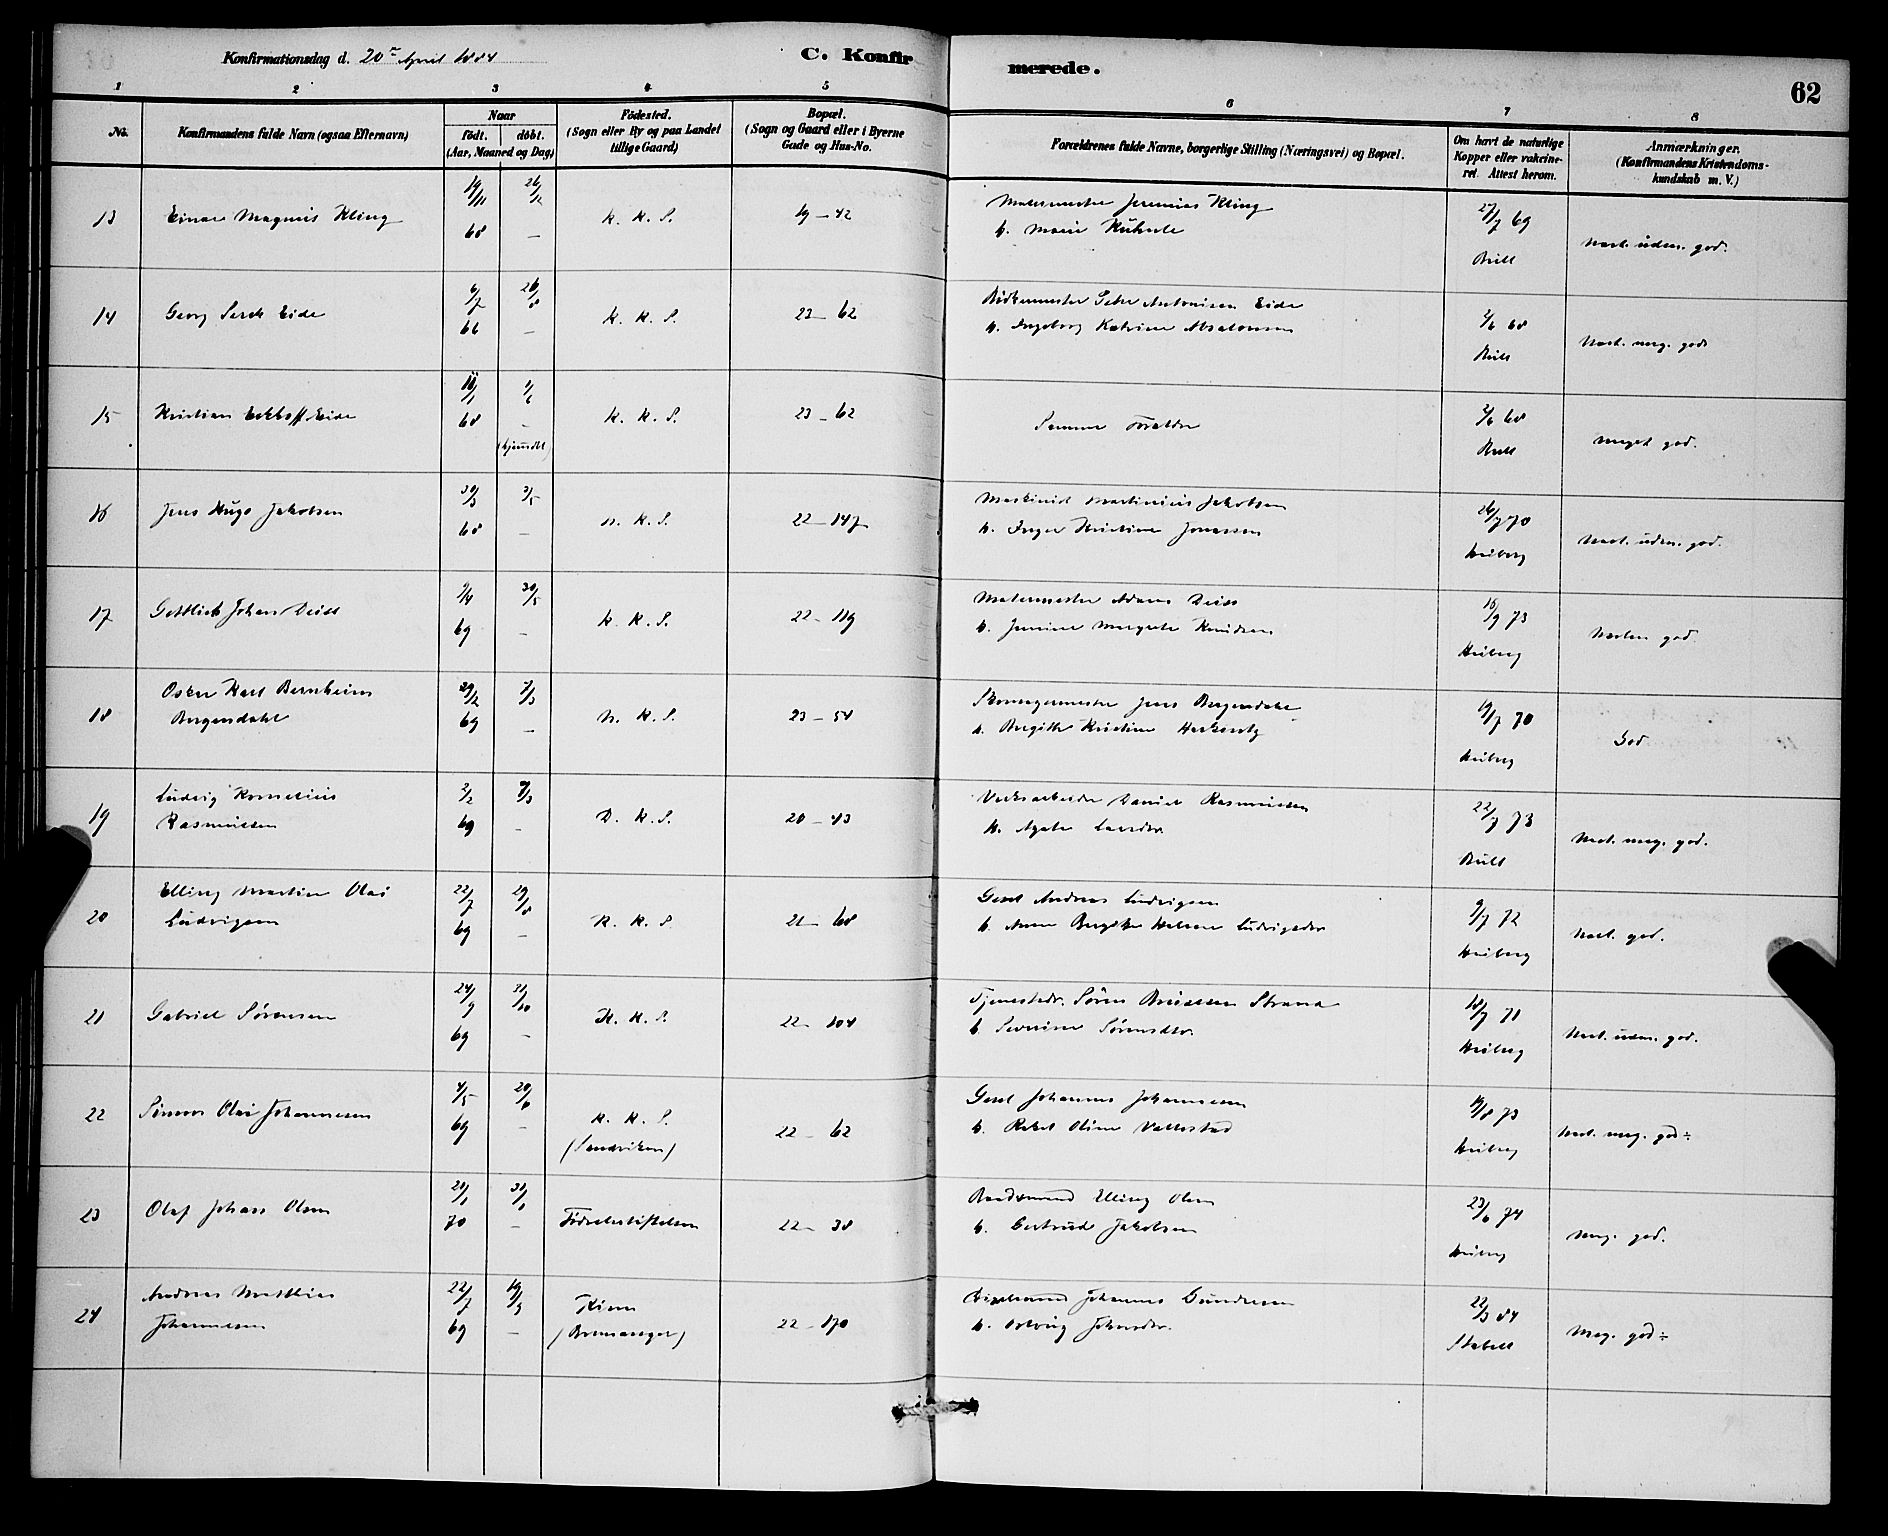 Konfirmationsdag d. 20de April 1884
C. Konfirmerede.
62
1 2 3 4 5 6 7 8
No.
Konfirmandens fulde Navn (ogsaa Efternavn)
Naar
födt. döbt.
(Aar, Maaned og Dag)
Födested.
(Sogn eller By og paa Landet
tillige Gaard)
Bopæl.
(Sogn og Gaard eller i Byerne
Gade og Hus-No.
Forældrenes fulde Navne, borgerlige Stilling (Næringsvei) og Bopæl.
Om havt de naturlige
Kopper eller vakcine-
ret. Attest herom.
Anmærkninger.
(Konfirmandens Kristendoms-
kundskab m. V.)
13 Einar Magnus Kling 19/11 68 26/12 – K. K. S. 19 – 42
Malermester Jeremias Kling
h. Marie
27/7 69
Bull
Næst. udm. god.
14 Georg Eide 6/7 66 26/8 – K. K. S. 22 – 62
Peter Antonisen Eide
h. Ingeborg Katrine Absalonsen
2/6 68
Bull
Næst. meg. god
15 Kristian Eckhoff Eide 11/1 68 1/6 – (hjemdbt) K. K. S. 23 – 62
Samme Forældre
2/6 68
Bull
meget god.
16 Jens Hugo Jakobsen 30/3 68 3/5 – N. K. S. 22 – 147
Maskinist Martinius Jakobsen
h. Inger Kristine Jonassen
26/7 70
Heiberg
Næst. udm. god.
17 Gottlieb Johan Deiss 9/4 69 30/5 – K. K. S. 22 – 119
Malermester Adam Deiss
h. Jensine Margrete Knudsen
16/9 73
Heiberg
Næsten god.
18 Oskar Karl Bernheim
Bergendahl
29/2 69 7/3 – N. K. S. 23 – 54
Skomagermester Jens Bergendahl
h. Birgitte Kristine
19/7 70
Heiberg
God
19 Ludvig Kornelius
Rasmussen
2/2 69 7/3 – D. K. S. 20 – 43
Verksarbeider Daniel Rasmussen
h. Agate Larsdtr.
22/7 73
Bull
Næst. meg. god.
20 Elling Martin Olai
Ludvigsen
22/7 69 29/8 – K. K. S. 21 – 68
Gesel Andreas Ludvigsen
h. Anne Helene Ludvigsdtr
9/7 72
Heiberg
Næst. god.
21 Gabriel Sørensen 24/9 69 31/10 – K. K. S. 22 – 104
Tjenestedr. Søren Strand
h. Severine Sørensdtr.
18/7 71
Heiberg
Næst. udm. god.
22 Simon Olai Johannesen 4/5 69 20/6 – K. K. S.
(Sandviken)
22 – 62
Gesel Johannes Johannesen
h. Rakel Oline Vallestad
19/8 73
Heiberg
Næst. meg. god ÷
23 Olaf Johan Olsen 21/1 70 31/1 – Fødselsstiftelsen 22 – 38
Baadsmand Elling Olsen
h. Gertrud Jakobsen
23/6 74
Heiberg
Meg. god.
24 Andreas Matthias
Johannesen
22/7 69 19/9 – Kinn
(Bremanger)
22 – 170
Johannes Gundersen
h. Johnsdtr.
22/3 84
Stabell
Meg. god ÷